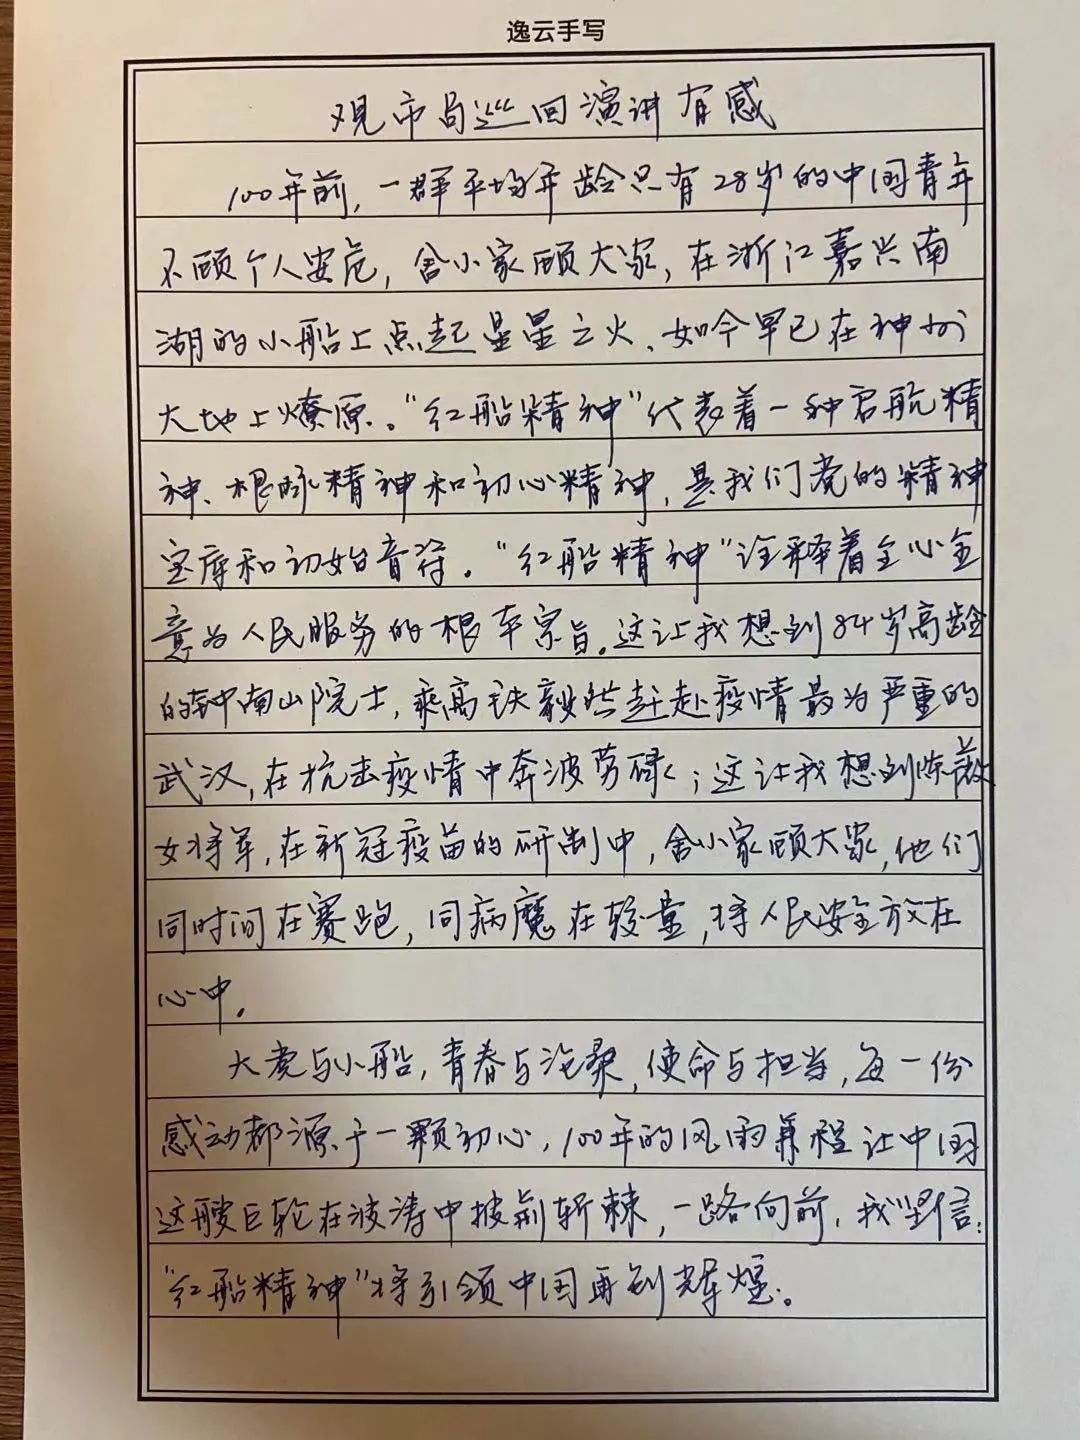 逸云手写
观市局巡回演讲有感
100年前,一群平均年龄只有28岁的中国青年
不顾个人安危,舍小家顾大家,在浙江嘉兴南
湖的小船上点起星星之火、如今早已在神州
大地上燎原。“红船精神”代表着一种启航精
神、根脉精神和初心精神,是我们党的精神
宝库和初始音符。“红船精神”诠释着全心全
意为人民服务的根本宗旨。这让我想到84岁高龄
的钟南山院士,乘高铁毅然赶赴疫情最为严重的
武汉,在抗击疫情中奔波劳碌;这让我想到陈薇
女将军,在新冠疫苗的研制中,舍小家顾大家,他们
同时间在赛跑,同病魔在较量,将人民安全放在
心中。
大党与小船,青春与沧桑,使命与担当,每一份
感动都源于一颗初心,100年的风雨兼程让中国
这艘巨轮在波涛中披荆斩棘,一路向前,我坚信:
“红船精神”将引领中国再创辉煌。